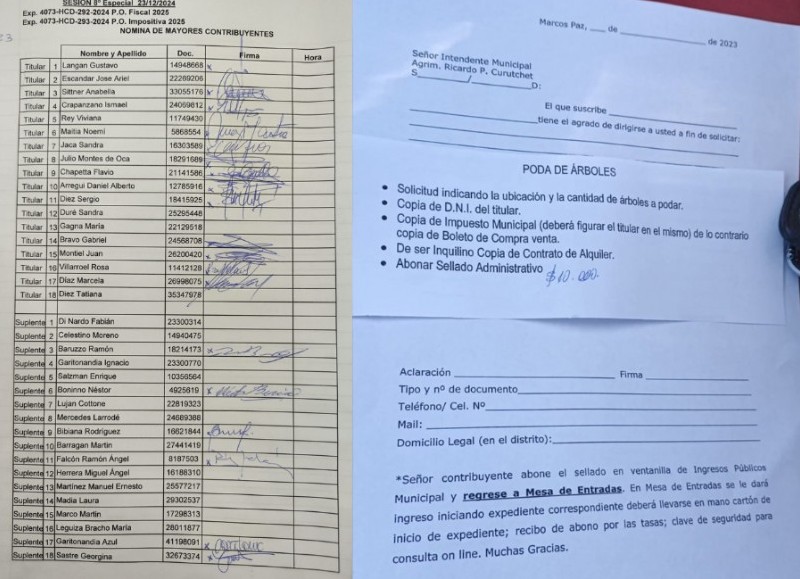 SESIÓN 8º Especial 23/12/2024
Exp. 4073-HCD-292-2024 P.O. Fiscal 2025
Exp. 4073-HCD-293-2024 P.O. Impositiva 2025
NOMINA DE MAYORES CONTRIBUYENTES
Nombre y Apellido Doc. Firma Hora
Titular 1 Langan Gustavo 14948668 x
Titular 2 Escandar Jose Ariel 22269206
Titular 3 Sittner Anabella 33055176 x
Titular 4 Crapanzano Ismael 24069812 x
Titular 5 Rey Viviana 11749430
Titular 6 Maitia Noemi 5868554
Titular 7 Jaca Sandra 16303589
Titular 8 Julio Montes de Oca 18291689
Titular 9 Chapetta Flavio 21141586
Titular 10 Arregui Daniel Alberto 12785916
Titular 11 Diez Sergio 18415925
Titular 12 Duré Sandra 25295448
Titular 13 Gagna María 22129518
Titular 14 Bravo Gabriel 24568708
Titular 15 Montiel Juan 26200420
Titular 16 Villarroel Rosa 11412128
Titular 17 Díaz Marcela 26998075
Titular 18 Diez Tatiana 35347978
Suplente 1 Di Nardo Fabián 23300314
Suplente 2 Celestino Moreno 14940475
Suplente 3 Baruzzo Ramón 18214173 x
Suplente 4 Garitonandia Ignacio 23300770
Suplente 5 Salzman Enrique 10356564
Suplente 6 Boninno Néstor 4925619 x
Suplente 7 Lujan Cottone 22819323
Suplente 8 Mercedes Larrodé 24689386
Suplente 9 Bibiana Rodríguez 16621844
Suplente 10 Barragan Martin 27441419
Suplente 11 Falcón Ramón Ángel 8187503 x
Suplente 12 Herrera Miguel Ángel 16188310
Suplente 13 Martínez Manuel Ernesto 25577217
Suplente 14 Madia Laura 29302537
Suplente 15 Marco Martín 17298313
Suplente 16 Leguiza Bracho María 28011877
Suplente 17 Garitonandia Azul 41198091 x
Suplente 18 Sastre Georgina 32673374 x
Marcos Paz, ___ de ____________ de 2023
Señor Intendente Municipal
Agrim. Ricardo P. Curutchet
S________/__________D:
El que suscribe ____________________
____________________tiene el agrado de dirigirse a usted a fin de solicitar:
PODA DE ÁRBOLES
• Solicitud indicando la ubicación y la cantidad de árboles a podar.
• Copia de D.N.I. del titular.
• Copia de Impuesto Municipal (deberá figurar el titular en el mismo) de lo contrario
copia de Boleto de Compra venta.
• De ser Inquilino Copia de Contrato de Alquiler.
• Abonar Sellado Administrativo $10.000
Aclaración ____________________ Firma ____________________
Tipo y nº de documento____________________
Teléfono/ Cel. Nº____________________
Mail: ____________________
Domicilio Legal (en el distrito):____________________
*Señor contribuyente abone el sellado en ventanilla de Ingresos Públicos
Municipal y regrese a Mesa de Entradas. En Mesa de Entradas se le dará
ingreso iniciando expediente correspondiente deberá llevarse en mano cartón de
inicio de expediente; recibo de abono por las tasas; clave de seguridad para
consulta on line. Muchas Gracias.